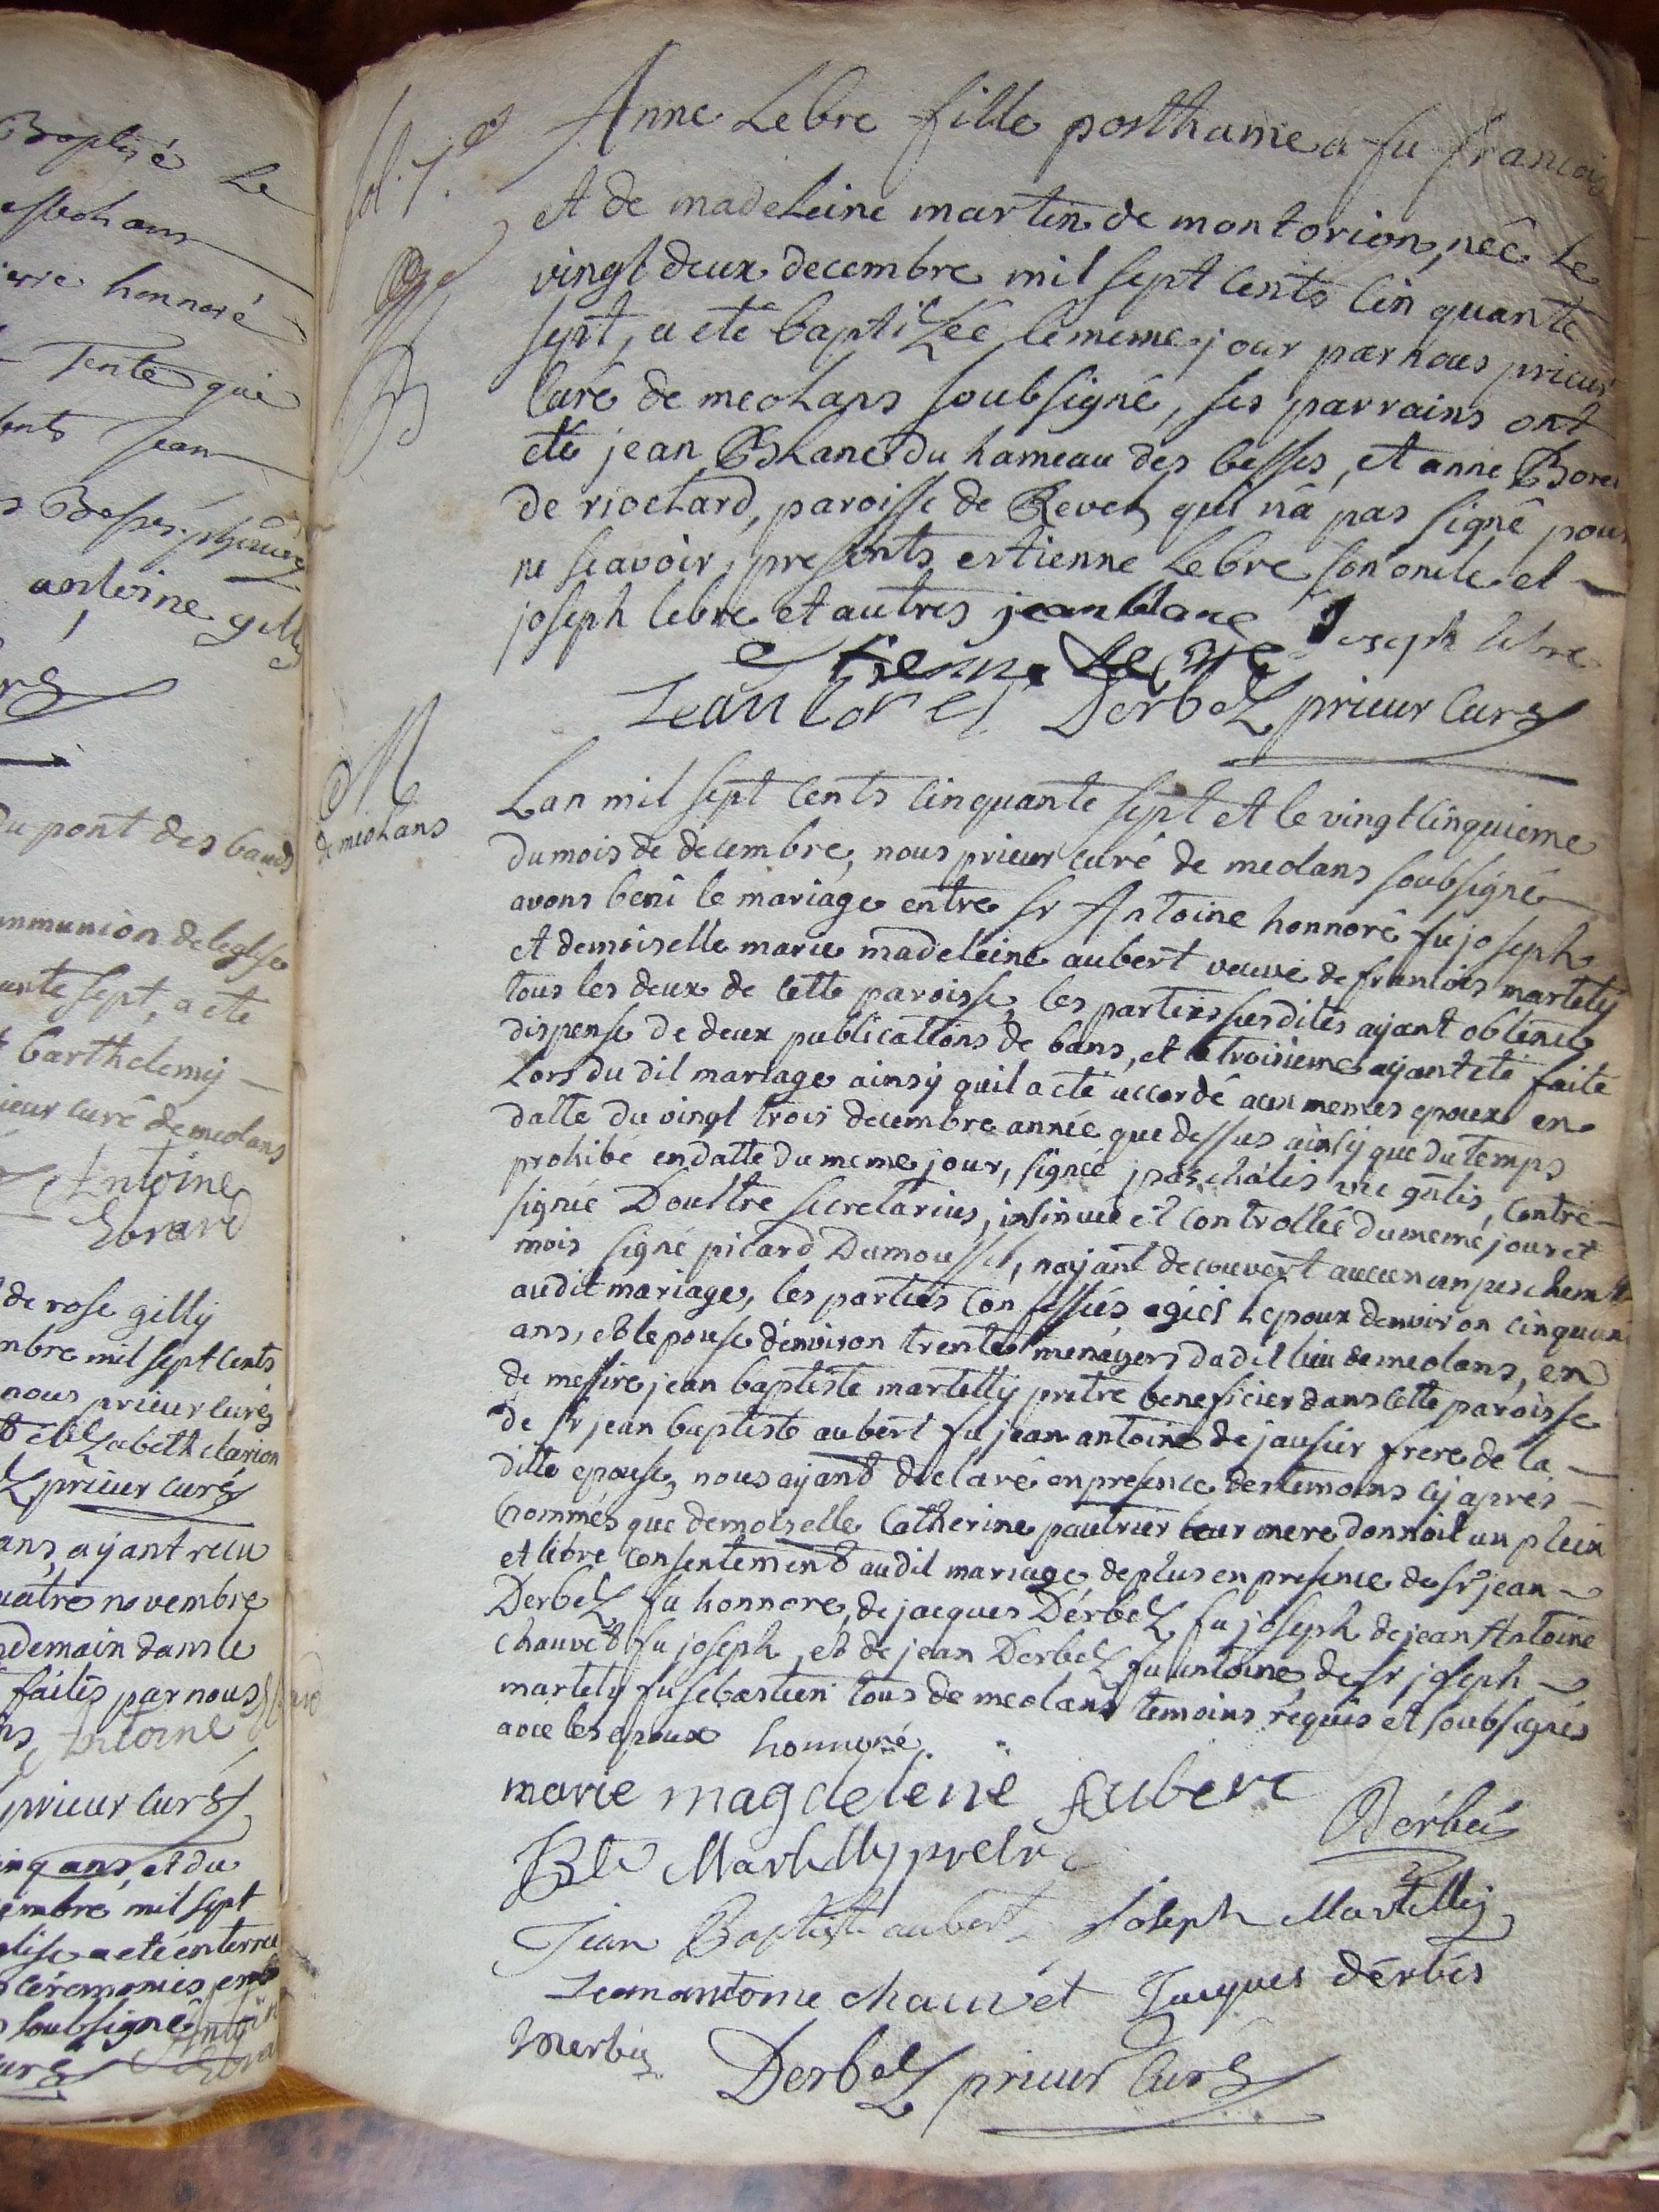 Baptisé le
meolans
pierre honnoré
Tente qui
presents Jean
antoine gilly
du pont des bauds
communion de leglise
cinquante sept, a ete
et barthelemy
prieur curé de meolans
Antoine
Ebrard
de rose gilly
mil sept cents
nous prieur curé
elizabeth clarion
prieur curé
ans, ayant recu
quatre novembre
demain dans le
faites par nous
Antoine
prieur curé
cinq ans, et du
mil sept
a ete enterré
ceremonies
soubsigné
curé
fol. 7.e
B
Anne Lebre fille posthume a fu francois
et de madeleine martin de montorion, née le
vingt deux decembre mil sept cents cinquante
sept, a eté baptizée le meme jour par nous prieur
curé de meolans soubsigné, ses parrains ont
eté jean Blanc du hameau des besses, et anne Borel
de riochard, paroisse de Revel qui n'a pas signé pour
ne scavoir, presents estienne Lebre son oncle et
joseph lebre et autres jean blanc Joseph lebre
etienne lebre
Jean borel Derbez prieur curé
M
de meolans
Lan mil sept cents cinquante sept et le vingt cinquieme
du mois de decembre, nous prieur curé de meolans soubsigné
avons beni le mariage entre sr Antoine honnoré fu joseph
et demoiselle marie madeleine aubert veuve de francois martely
tous les deux de cette paroisse, les parties susdites ayant obtenu
dispense de deux publications de bans, et la troisieme ayant eté faite
Lors du dit mariage ainsy quil a eté accordé aux memes epoux en
datte du vingt trois decembre année que dessus ainsy que du temps
prohibé en datte du meme jour, signée paschalis vic gnlis, contre
signée Doultre secretarius, insinuée et controllée du meme jour et
mois signé picard Dumousset, nayant decouvert aucun empeschement
audit mariage, les parties confessées agées lepoux denviron cinquante
ans, et lepouse denviron trente menagers dudit lieu de meolans, en
de messire jean baptiste martelly pretre beneficier dans cette paroisse
de sr jean baptiste aubert fu jean antoine de jausier frere de la
ditte epouse, nous ayant declaré en presence des temoins cy apres
nommés que demoiselle Catherine pautrier leur mere donnoit un plein
et libre consentement audit mariage, de plus en presence de sr jean
Derbez fu honnore, de jacques Derbez fu joseph de jean Antoine
chauvet fu joseph, et de jean Derbez fu antoine, de sr joseph
martely fu sebastien tous de meolans temoins requis et soubsignés
avec les epoux honnoré
marie magdeleine Aubert
Bte Martelly pretre Dérbés
Jean Baptiste aubert Joseph Martelly
Jean antoine chauvet Jacques dérbés
Derbez prieur curé